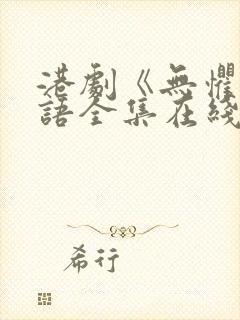 港劇《無懼
語全集在綫
希行